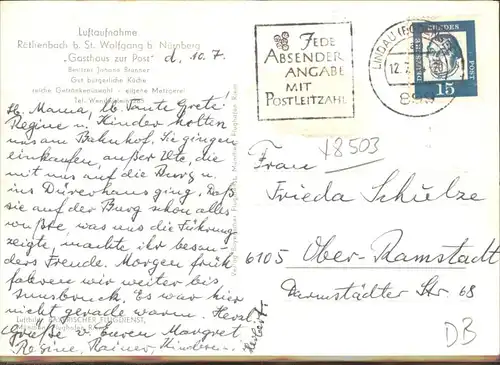 Luftaufnahme
Röthenbach b. St. Wolfgang b. Nürnberg
„Gasthaus zur Post"
d. 10.7.
Besitzer Johann Brunner
Gut bürgerliche Küche
reiche Getränkeauswahl - eigene Metzgerei
Tel. Wendelstein
Lb. Mama, lb. Tante Grete!
Regine u. Kinder holten
uns am Bahnhof. Sie gingen
einkaufen, außer Ute, die
mit uns auf die Burg u.
ins Dürerhaus ging. Daß
sie auf der Burg schon alles
wußte, was uns die Führung
zeigte, machte ihr beson-
ders Freude. Morgen früh
fahren wir weiter bis
Innsbruck. Es war hier
nicht gerade warm. Herzl.
Grüße v. Euren Margret,
Regine, Rainer, Kindern
Herbert.
Luftbild BAYERISCHER FLUGDIENST,
München Flughafen Riem
JEDE
ABSENDER
ANGABE
MIT
POSTLEITZAHL
LINDAU (BODENSEE)
12.7.
899
DEUTSCHE BUNDESPOST
15
x8503
Frau
Frieda Schulze
6105 Ober-Ramstadt
Darmstädter Str. 68
DB